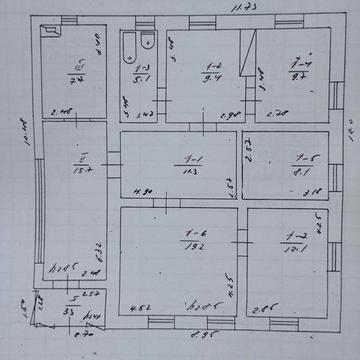 11.73
2.40
III
7.7
2.48
1-3
5.1
3.48
1.47
3.48
1-2
9.4
2.98
3.48
1-4
9.7
2.78
10.48
II
15.7
6.32
2.48
1-1
11.3
4.90
2.57
1-5
8.1
3.18
1-6
19.2
4.62
4.25
4.25
12.1
2.85
I
3.3
2.57
1.28
1.50
2.70
8.95